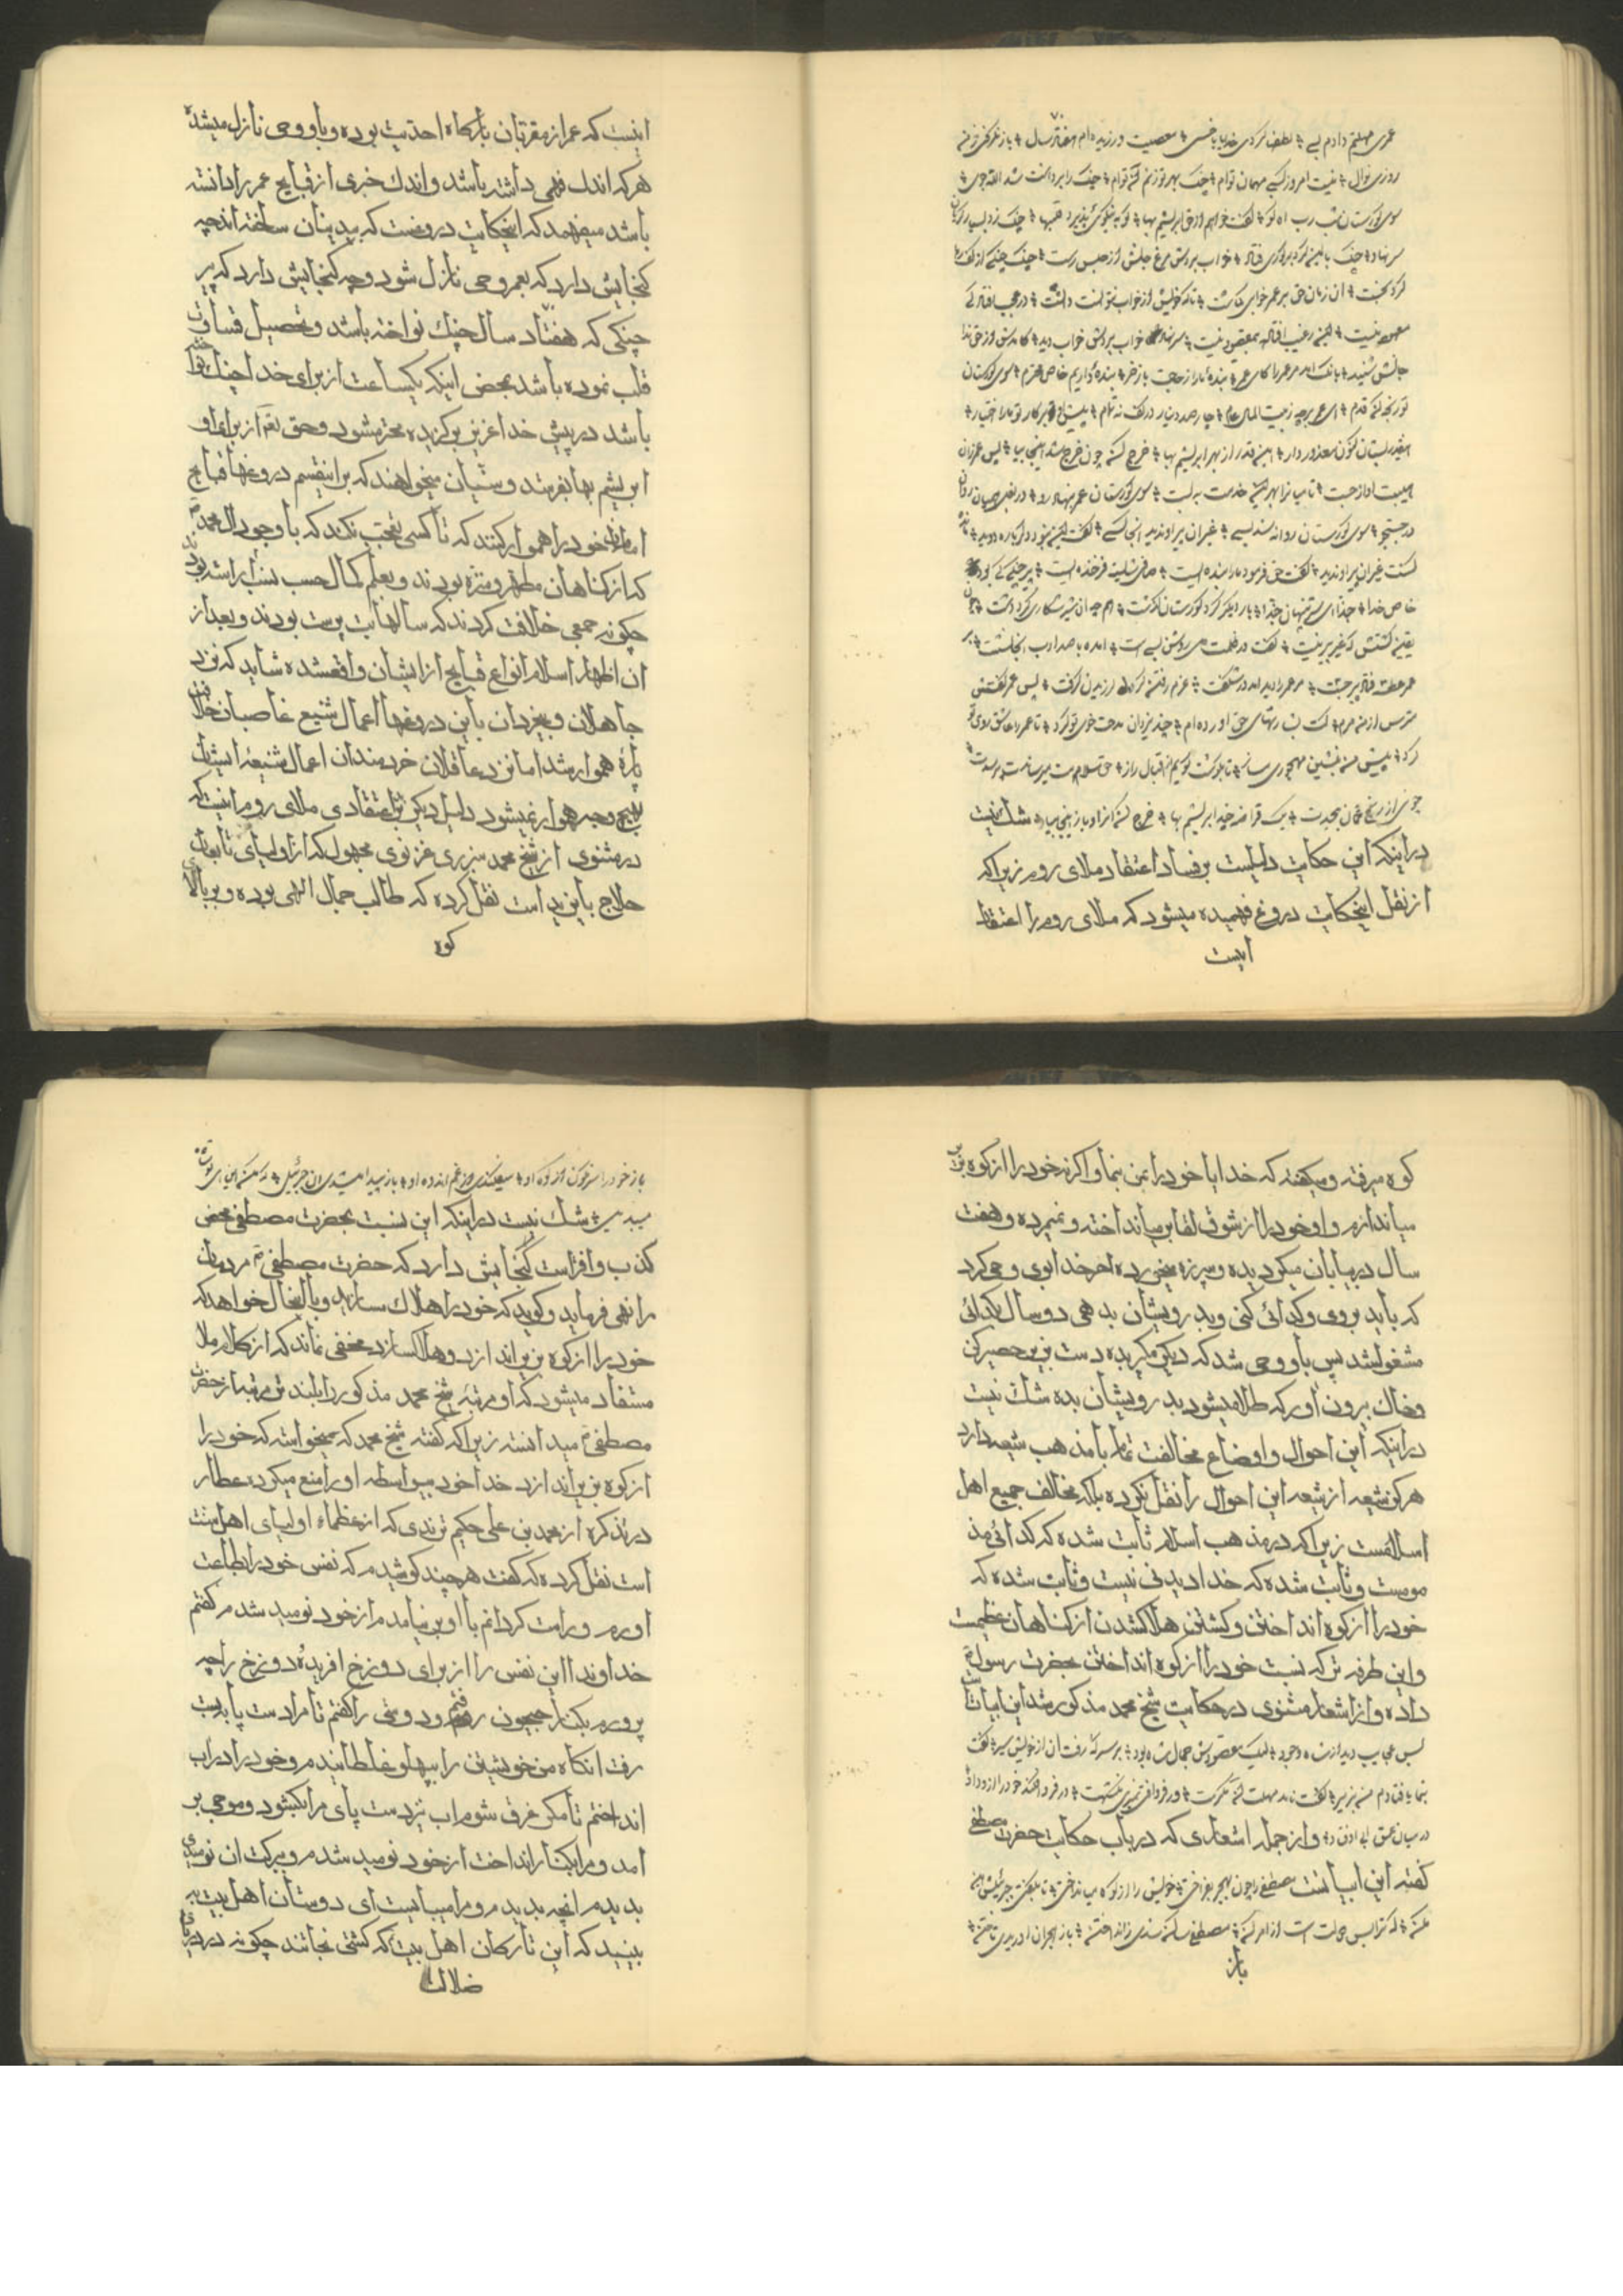 عمری مهلتم دادم بسی ؞ لطف کردی خدایا با خسی ؞ معصیت ورزیده‌ام هفتاد سال ؞ باز نگرفتی ز من
روزی نوال ؞ نیست امروز کسب مهمان توام ؞ چنگ بهر تو زنم
سوی گورستان یثرب آه گو ؞ گفت خواهم از حق ابریشم بها ؞ کو به نیکویی پذیرد قلبها ؞ چنگ زد بسیار و گریان
سر نهاد ؞ چنگ بالین کرد بر گوری فتاد ؞ خواب بردش مرغ جانش از حبس رست ؞ چنگ و چنگی را رها
کرد بجست ؞ آن زمان حق بر عمر خوابی گماشت ؞ تا که خویش از خواب نتوانست داشت ؞ در عجب افتاد که
معهود نیست ؞ این ز غیب افتاد بمقصود نیست ؞ سر نهاد خواب بردش خواب دید ؞ کامدش از حق ندا
جانش شنید ؞ بانگ آمد مر عمر را کای عمر ؞ بنده ما را ز حاجت باز خر ؞ بنده داریم خاص محترم ؞ سوی گورستان
تو رنجه کن قدم ؞ ای عمر برجه ز بیت المال عام ؞ چار صد دینار در کف نه تمام ؞ پیش او بر کای تو ما را اختیار ؞
اینقدر بستان کنون معذور دار ؞ این قدر از بهر ابریشم بها ؞ خرج کن چون خرج شد اینجا بیا ؞ پس عمر زان
هیبت آواز جست ؞ تا میان را بهر این خدمت به بست ؞ سوی گورستان عمر بنهاد رو ؞ در بغل همیان دوان
در جستجو ؞ سوی گورستان روانه شد بسی ؞ غیر آن پیر او ندید آنجا کسی ؞ گفت این نبود دگر باره دوید ؞
گشت غیر آن پیر او ندید ؞ گفت حق فرمود ما را بنده ایست ؞ صافی شایسته فرخنده ایست ؞ پیر چنگی کی بود
خاص خدا ؞ حبذا ای سر پنهان حبذا ؞ بار دیگر گرد گورستان گشت ؞ همچو آن شیر شکاری گرد دشت ؞ چون
یقین گشتش که غیر پیر نیست ؞ گفت در ظلمت دل روشن بسی است ؞ آمد با صد ادب آنجا نشست ؞ بر
عمر عطسه فتاد پیر جست ؞ مر عمر را دید ماند در شگفت ؞ عزم رفتن کرد و لرزیدن گرفت ؞ پس عمر گفتش
مترس از من مرم ؞ کت بشارتهای حق آورده‌ام ؞ چند یزدان مدحت خوی تو کرد ؞ تا عمر را عاشق روی تو
کرد ؞ پیش من بنشین مهجوری مساز ؞ تا بگوشت گویم از اقبال راز ؞ حق سلامت میرساند میپرسدت ؞
چونی از رنج و غمان بیحدت ؞ نک قراضه چند ابریشم بها ؞ خرج کن آنرا و باز اینجا بیا ؞ شک نیست
در اینکه این حکایت دلیلست بر فساد اعتقاد ملای روم زیرا که
از نقل اینحکایت دروغ فهمیده میشود که ملای روم را اعتقاد
اینست
اینست که عمر از مقربان بارگاه احدیت بوده و باو وحی نازل میشده
هر که اندک فهمی داشته باشد و اندک خبری از قبایح عمر را دانسته
باشد میفهمد که اینحکایت دروغست که بیدینان ساخته‌اند چه
گنجایش دارد که بعمر وحی نازل شود و چه گنجایش دارد که پیر
چنگی که هفتاد سال چنک نواخته باشد و تحصیل قساوت
قلب نموده باشد بمحض اینکه یکساعت از برای خدا چنک نواخته
باشد در پیش خدا عزیز و برگزیده و محترم شود و حق تعالی از برای او
ابریشم بها بفرستد و سنیان میخواهند که براینقسم دروغها قبایح
امامان خود را هموار کنند که تا کسی تعجب نکند که با وجود آل محمد ص
که از گناهان مطهر و منزه بودند و بعلم و کمال و حسب و نسب آراسته بودند
چگونه جمعی خلافت کردند که سالها بت پرست بودند و بعد از
آن اظهار اسلام انواع قبایح از ایشان واقعشده شاید که نزد
جاهلان و بیخردان باین دروغها اعمال شنیع غاصبان خلافت
پارهٔ هموار شد اما نزد عاقلان و خردمندان اعمال شنیعهٔ ایشان
بهیچ وجه هموار نمیشود دلیل دیگر بر بی‌اعتقادی ملای روم اینست که
در مثنوی از شیخ محمد سررزی غزنوی مجهول که از اولیای تابعان
حلاج و بایزید است نقل کرده که طالب جمال الهی بوده و بر بالای
کوه
کوه میرفته و میگفته که خدایا خود را بمن بنما و اگر نه خود را از کوه بزیر
میاندازم و او خود را از شوق لقا بزیر میانداخته و نمیمرده و هفت
سال در بیابان میگردیده و سبزه میخورده آخر خدا بوی وحی کرد
که باید بروی و گدائی کنی و بدرویشان بدهی دو سال بگدائی
مشغول شد پس باو وحی شد که دیگر مگیر بده دست بزیر حصیر کن
و خاک بیرون آور که طلا میشود بدرویشان بده شک نیست
در اینکه این احوال و اوضاع مخالفت تمام با مذهب شیعه دارد
هرگز شیعه از شیعه این احوال را نقل نکرده بلکه مخالف جمیع اهل
اسلامست زیرا که در مذهب اسلام ثابت شده که گدائی مذ
مومست و ثابت شده که خدا دیدنی نیست و ثابت شده که
خود را از کوه انداختن و کشتن و هلاک شدن از گناهان عظیمست
و این طرفه تر که نسبت خود را از کوه انداختن بحضرت رسول ص
داده و از اشعار مثنوی در حکایت شیخ محمد مذکور شد این ابیاتست
بس عجایب دید از شاه وجود ؞ لیک مقصودش جمال شاه بود ؞ بر سر که رفت آن از خویش سیر ؞ گفت
بنما یا فتادم من بزیر ؞ گفت نامد مهلت آن مکرمت ؞ ور فرو افتی نمیری نکشمت ؞ او فرو افکند خود را از وداد ؞
در میان عمق آبی اوفتاد ؞ و از جمله اشعاری که در باب حکایت حضرت مصطفی
گفته این ابیاتست مصطفی را چون هجر بفراختی ؞ خویش را از کوه میانداختی ؞ تا بگفتی جبرئیلش هین
مکن ؞ که ترا بس دولت است از امر کن ؞ مصطفی ساکن شدی ز انداختن ؞ باز هجران آوریدی تاختن ؞
باز
باز خود را سرنگون از کوه او ؞ میفکندی از غم و اندوه او ؞ باز پیدا میشدی آن جبرئیل ؞ که مکن این ای تو شاه
بیبدیل ؞ شک نیست در اینکه این نسبت بحضرت مصطفی محض
کذب و افتراست گنجایش دارد که حضرت مصطفی ص مردمان
را نهی فرماید و گوید که خود را هلاک مسازید و باینحال خواهد که
خود را از کوه بزیر اندازد و هلاک سازد مخفی نماند که از کلام ملا
مستفاد میشود که او مرتبهٔ شیخ محمد مذکور را بلند تر مرتبه از حضرت
مصطفی ص میدانسته زیرا که گفته شیخ محمد که میخواسته که خود را
از کوه بزیر اندازد خدا خود بیواسطه او را منع میکرد عطار
در تذکره از محمد بن علی حکیم ترمذی که از عظماء اولیای اهل سنت
است نقل کرده که گفت هر چند کوشیدم که نفس خود را بطاعت
آورم و رامت گردانم با او بر نیامدم از خود نومید شدم گفتم
خداوندا این نفس را از برای دوزخ آفریدهٔ دوزخ را چه
پرورم بکنار جیحون رفتم و دوستی را گفتم تا مرا دست و پا ببست
و رفت آنگاه من خویشتن را بپهلو غلطانیدم و خود را در آب
انداختم تا مگر غرق شوم آب بزد دست و پای مرا بگشود و موجی بر
آمد و مرا بکنار انداخت از خود نومید شدم و ببرکت آن نومیدی
بدیدم آنچه بدیدم و مرا میبایست ای دوستان اهل بیت
ببینید که این تارکان اهل بیت که کشتی نجاتند چگونه در دریای
ضلالت